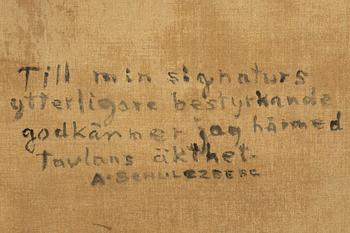 Till min signaturs
ytterligare bestyrkande
godkänner jag härmed
tavlans äkthet.
A. SCHULZBERG